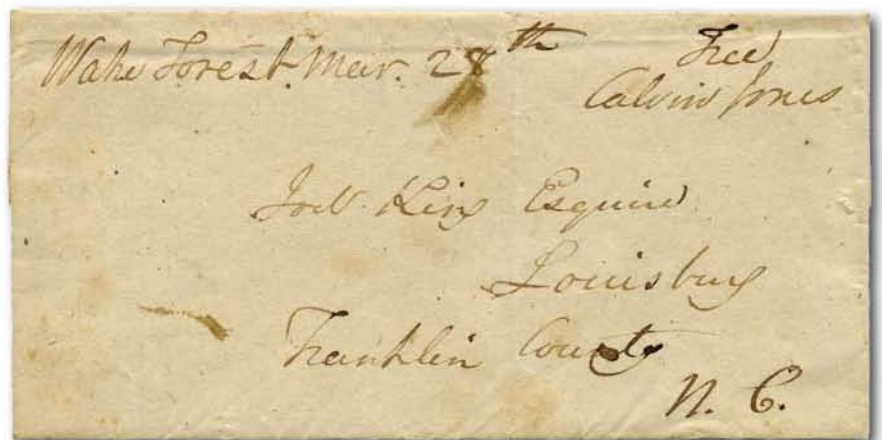 Wake Forest Mar. 28th
Free
Calvin Jones
Joel King Esquire
Louisburg
Franklin County
N. C.